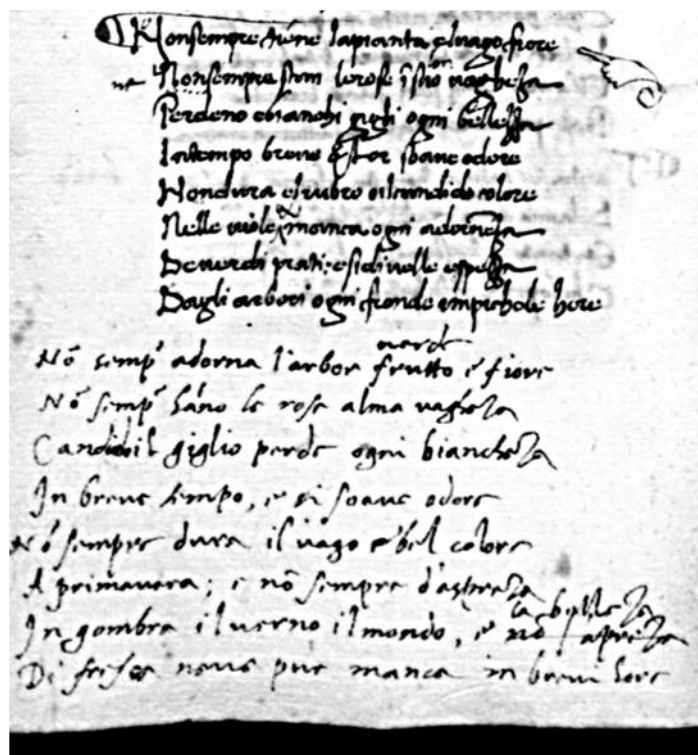 Nonsempre tiene lapianta eluago fiore
Nonsempre stan lerose
Perdeno ebianchi gigli ogni bellezza
Intempo breve soave odore
Nondura elrubro oilcandido colore
Nelle viole manca ogni
Deverdi prati
Dagli arbori ogni fronde impichole hore
verde
Nō semp adorna l'arbor frutto e fiore
Nō semp hāno le rose alma vagheza
Candido il giglio perde ogni biancheza
In breve tempo, e si soave odore
Nō sempre dura il vago e bel colore
A primavera; e nō sempre d'asprezza
la belleza
In gombra il verno il mondo, e
Di fresca neve pur manca in brevi hore